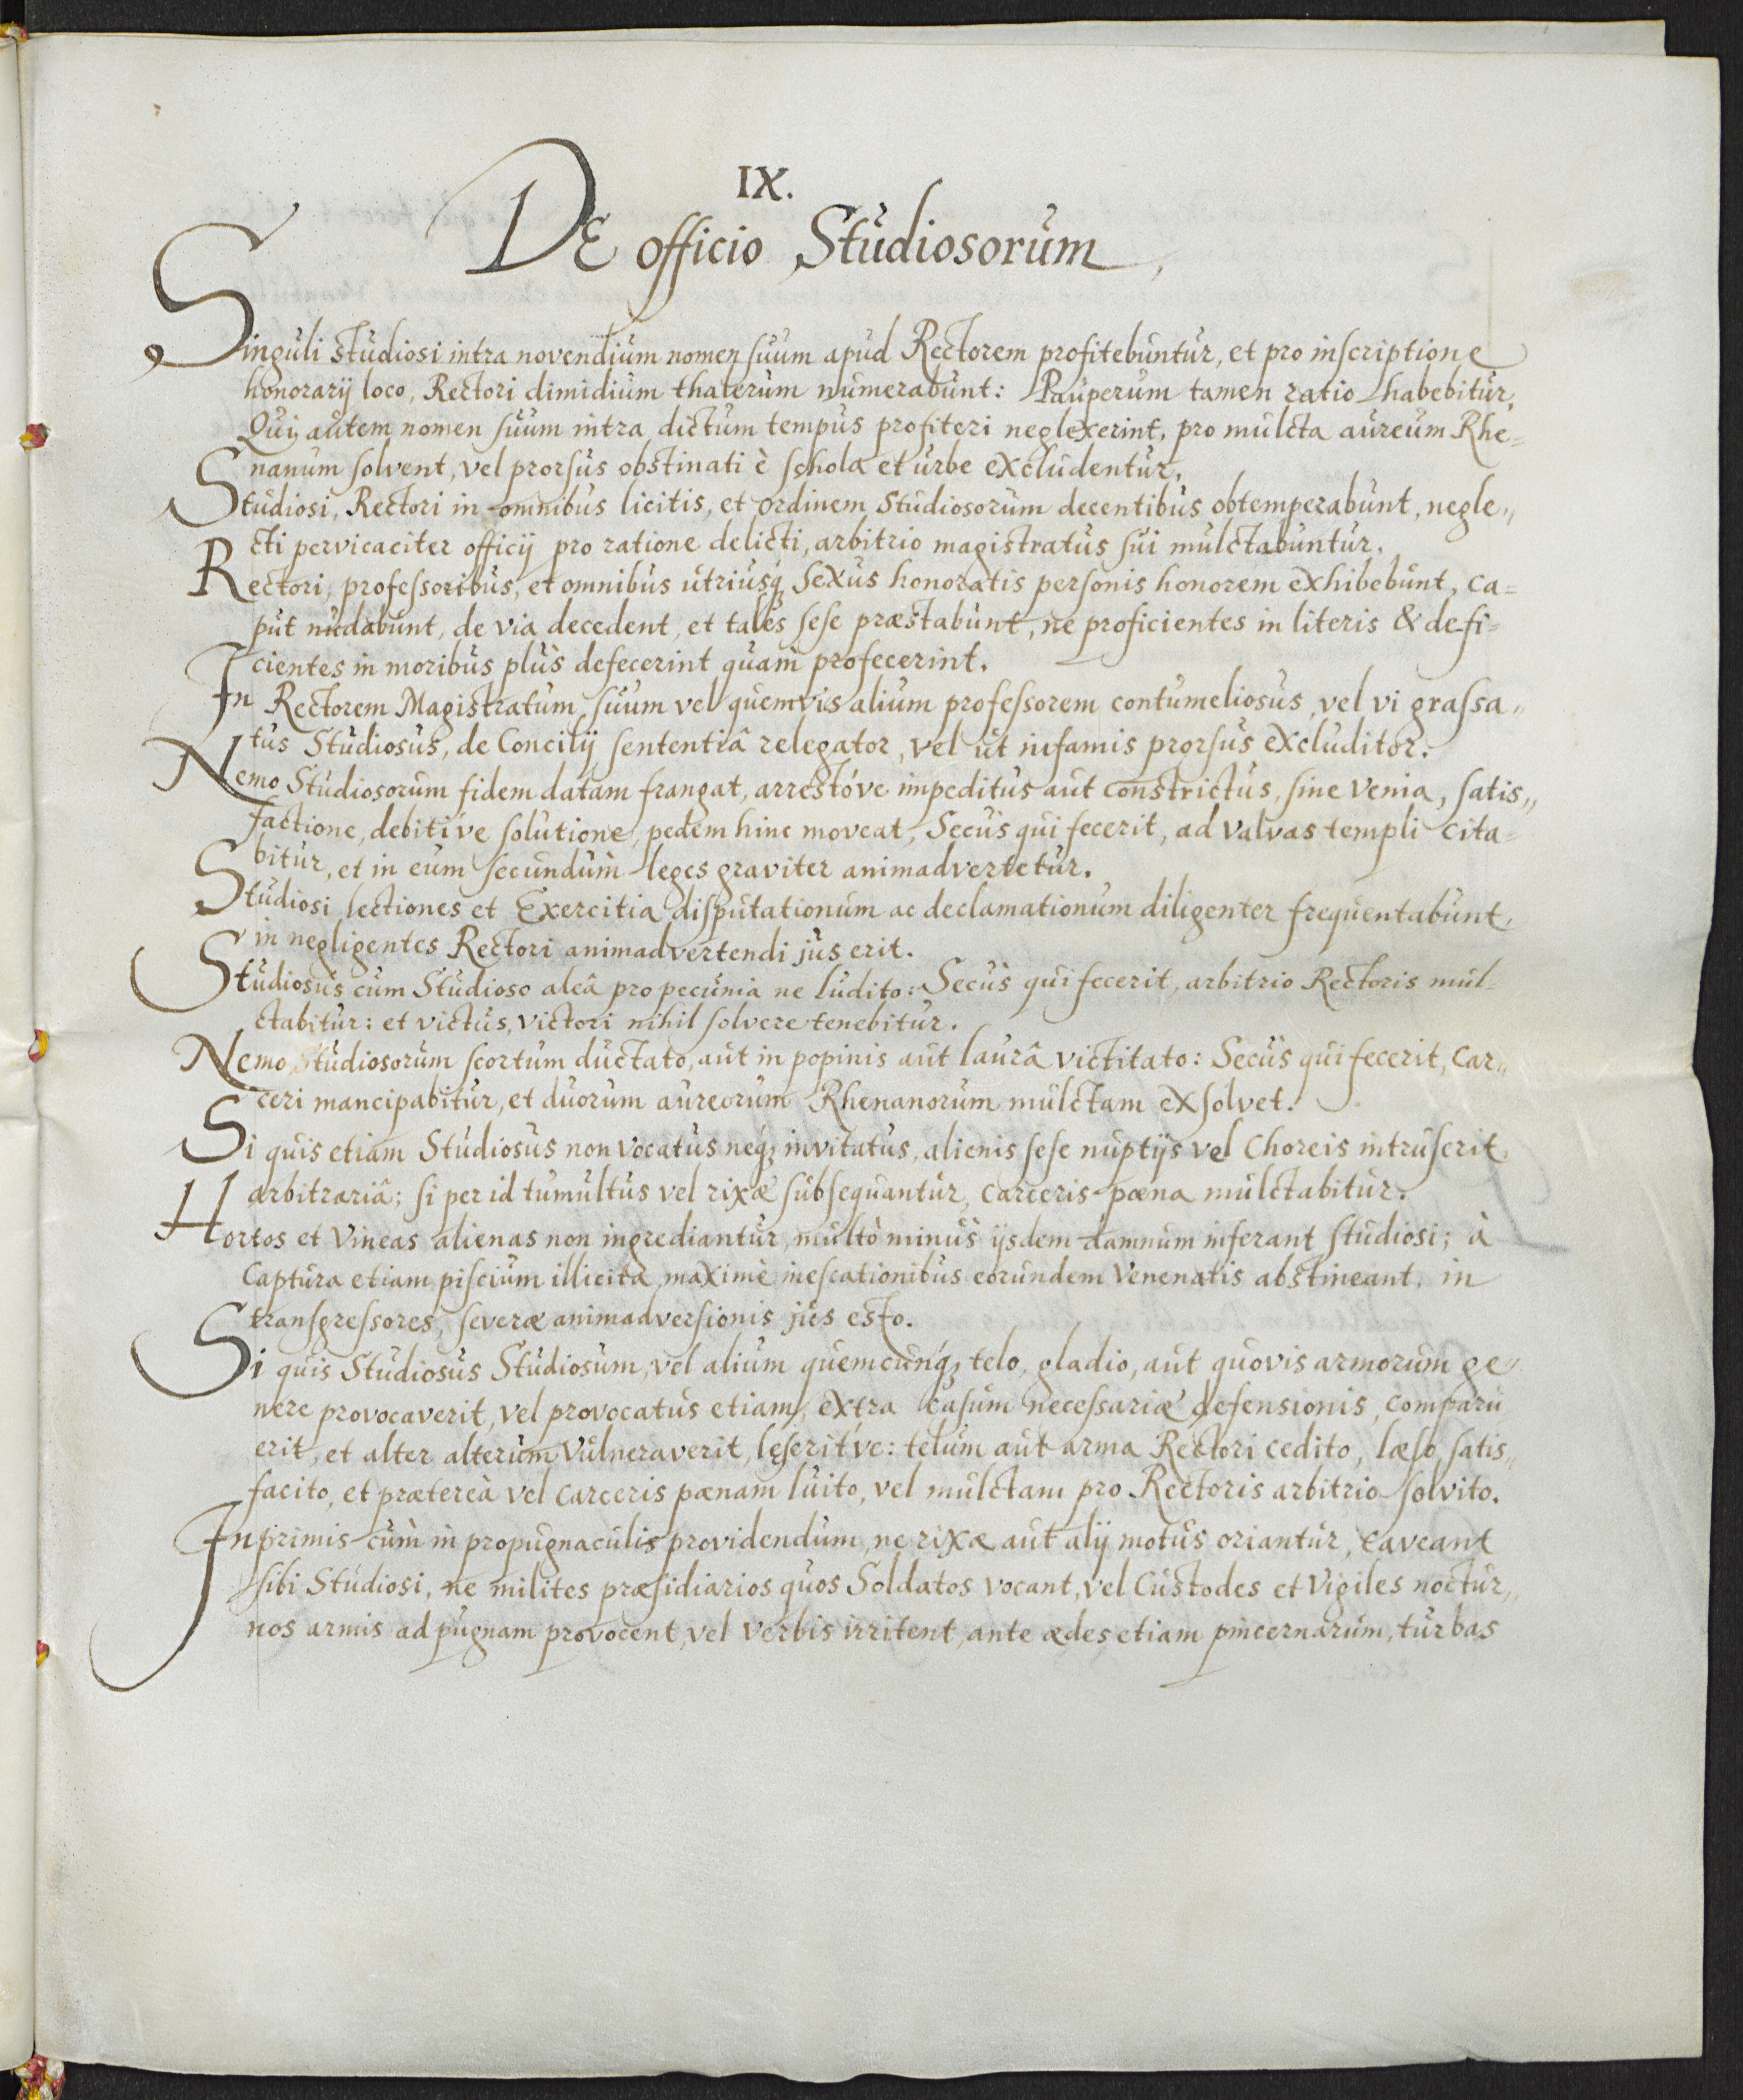 IX.
DE officio Studiosorum,
Singuli studiosi intra novendium nomen suum apud Rectorem profitebuntur, et pro inscriptione
honorarij loco, Rectori dimidium thalerum numerabunt: Pauperum tamen ratio habebitur,
Qui autem nomen suum intra dictum tempus profiteri neglexerint, pro mulcta aureum Rhe=
nanum solvent, vel prorsus obstinati è schola et urbe excludentur.
Studiosi, Rectori in omnibus licitis, et ordinem studiosorum decentibus obtemperabunt, negle„
cti pervicaciter officij pro ratione delicti, arbitrio magistratus sui mulctabuntur.
Rectori, professoribus, et omnibus utriusq; sexus honoratis personis honorem exhibebunt, ca=
put nudabunt, de via decedent, et tales sese præstabunt, ne proficientes in literis & defi=
cientes in moribus plus defecerint quam profecerint.
In Rectorem Magistratum suum vel quemvis alium professorem contumeliosus, vel vi grassa„
tus Studiosus, de Concilij sententiâ relegator, vel ut infamis prorsus excluditor.
Nemo Studiosorum fidem datam frangat, arrestóve impeditus aut constrictus, sine venia, satis„
factione, debitíve solutione, pedem hinc moveat, Secus qui fecerit, ad valvas templi cita=
bitur, et in eum secundum leges graviter animadvertetur.
Studiosi lectiones et Exercitia disputationum ac declamationum diligenter frequentabunt,
in negligentes Rectori animadvertendi jus erit.
Studiosus cum Studioso aleâ pro pecunia ne ludito: Secus qui fecerit, arbitrio Rectoris mul-
ctabitur: et victus, victori nihil solvere tenebitur.
Nemo Studiosorum scortum ductato, aut in popinis aut laurâ victitato: Secus qui fecerit, Car„
ceri mancipabitur, et duorum aureorum Rhenanorum mulctam exsolvet.
Si quis etiam Studiosus non vocatus neq; invitatus, alienis sese nuptijs vel Choreis intruserit,
arbitrariâ; si per id tumultus vel rixæ subsequantur, carceris pœna mulctabitur.
Hortos et Vineas alienas non ingrediantur, multò minus ijsdem damnum inferant studiosi; à
Captura etiam piscium illicita, maximè inescationibus eorundem venenatis abstineant, in
transgressores, severæ animadversionis jus esto.
Si quis Studiosus Studiosum, vel alium quemcunq; telo, gladio, aut quovis armorum ge„
nere provocaverit, vel provocatus etiam, extra casum necessariæ defensionis, comparu
erit, et alter alterum vulneraverit, lęseritve: telum aut arma Rectori cedito, læso, satis„
facito, et prætereà vel carceris pœnam luito, vel mulctam pro Rectoris arbitrio solvito.
Inprimis cùm in propugnaculis providendum, ne rixæ aut alij motus oriantur, caveant
sibi Studiosi, ne milites præsidiarios quos Soldatos vocant, vel Custodes et Vigiles noctur„
nos armis ad pugnam provocent, vel verbis irritent, ante ædes etiam pincernarum, turbas